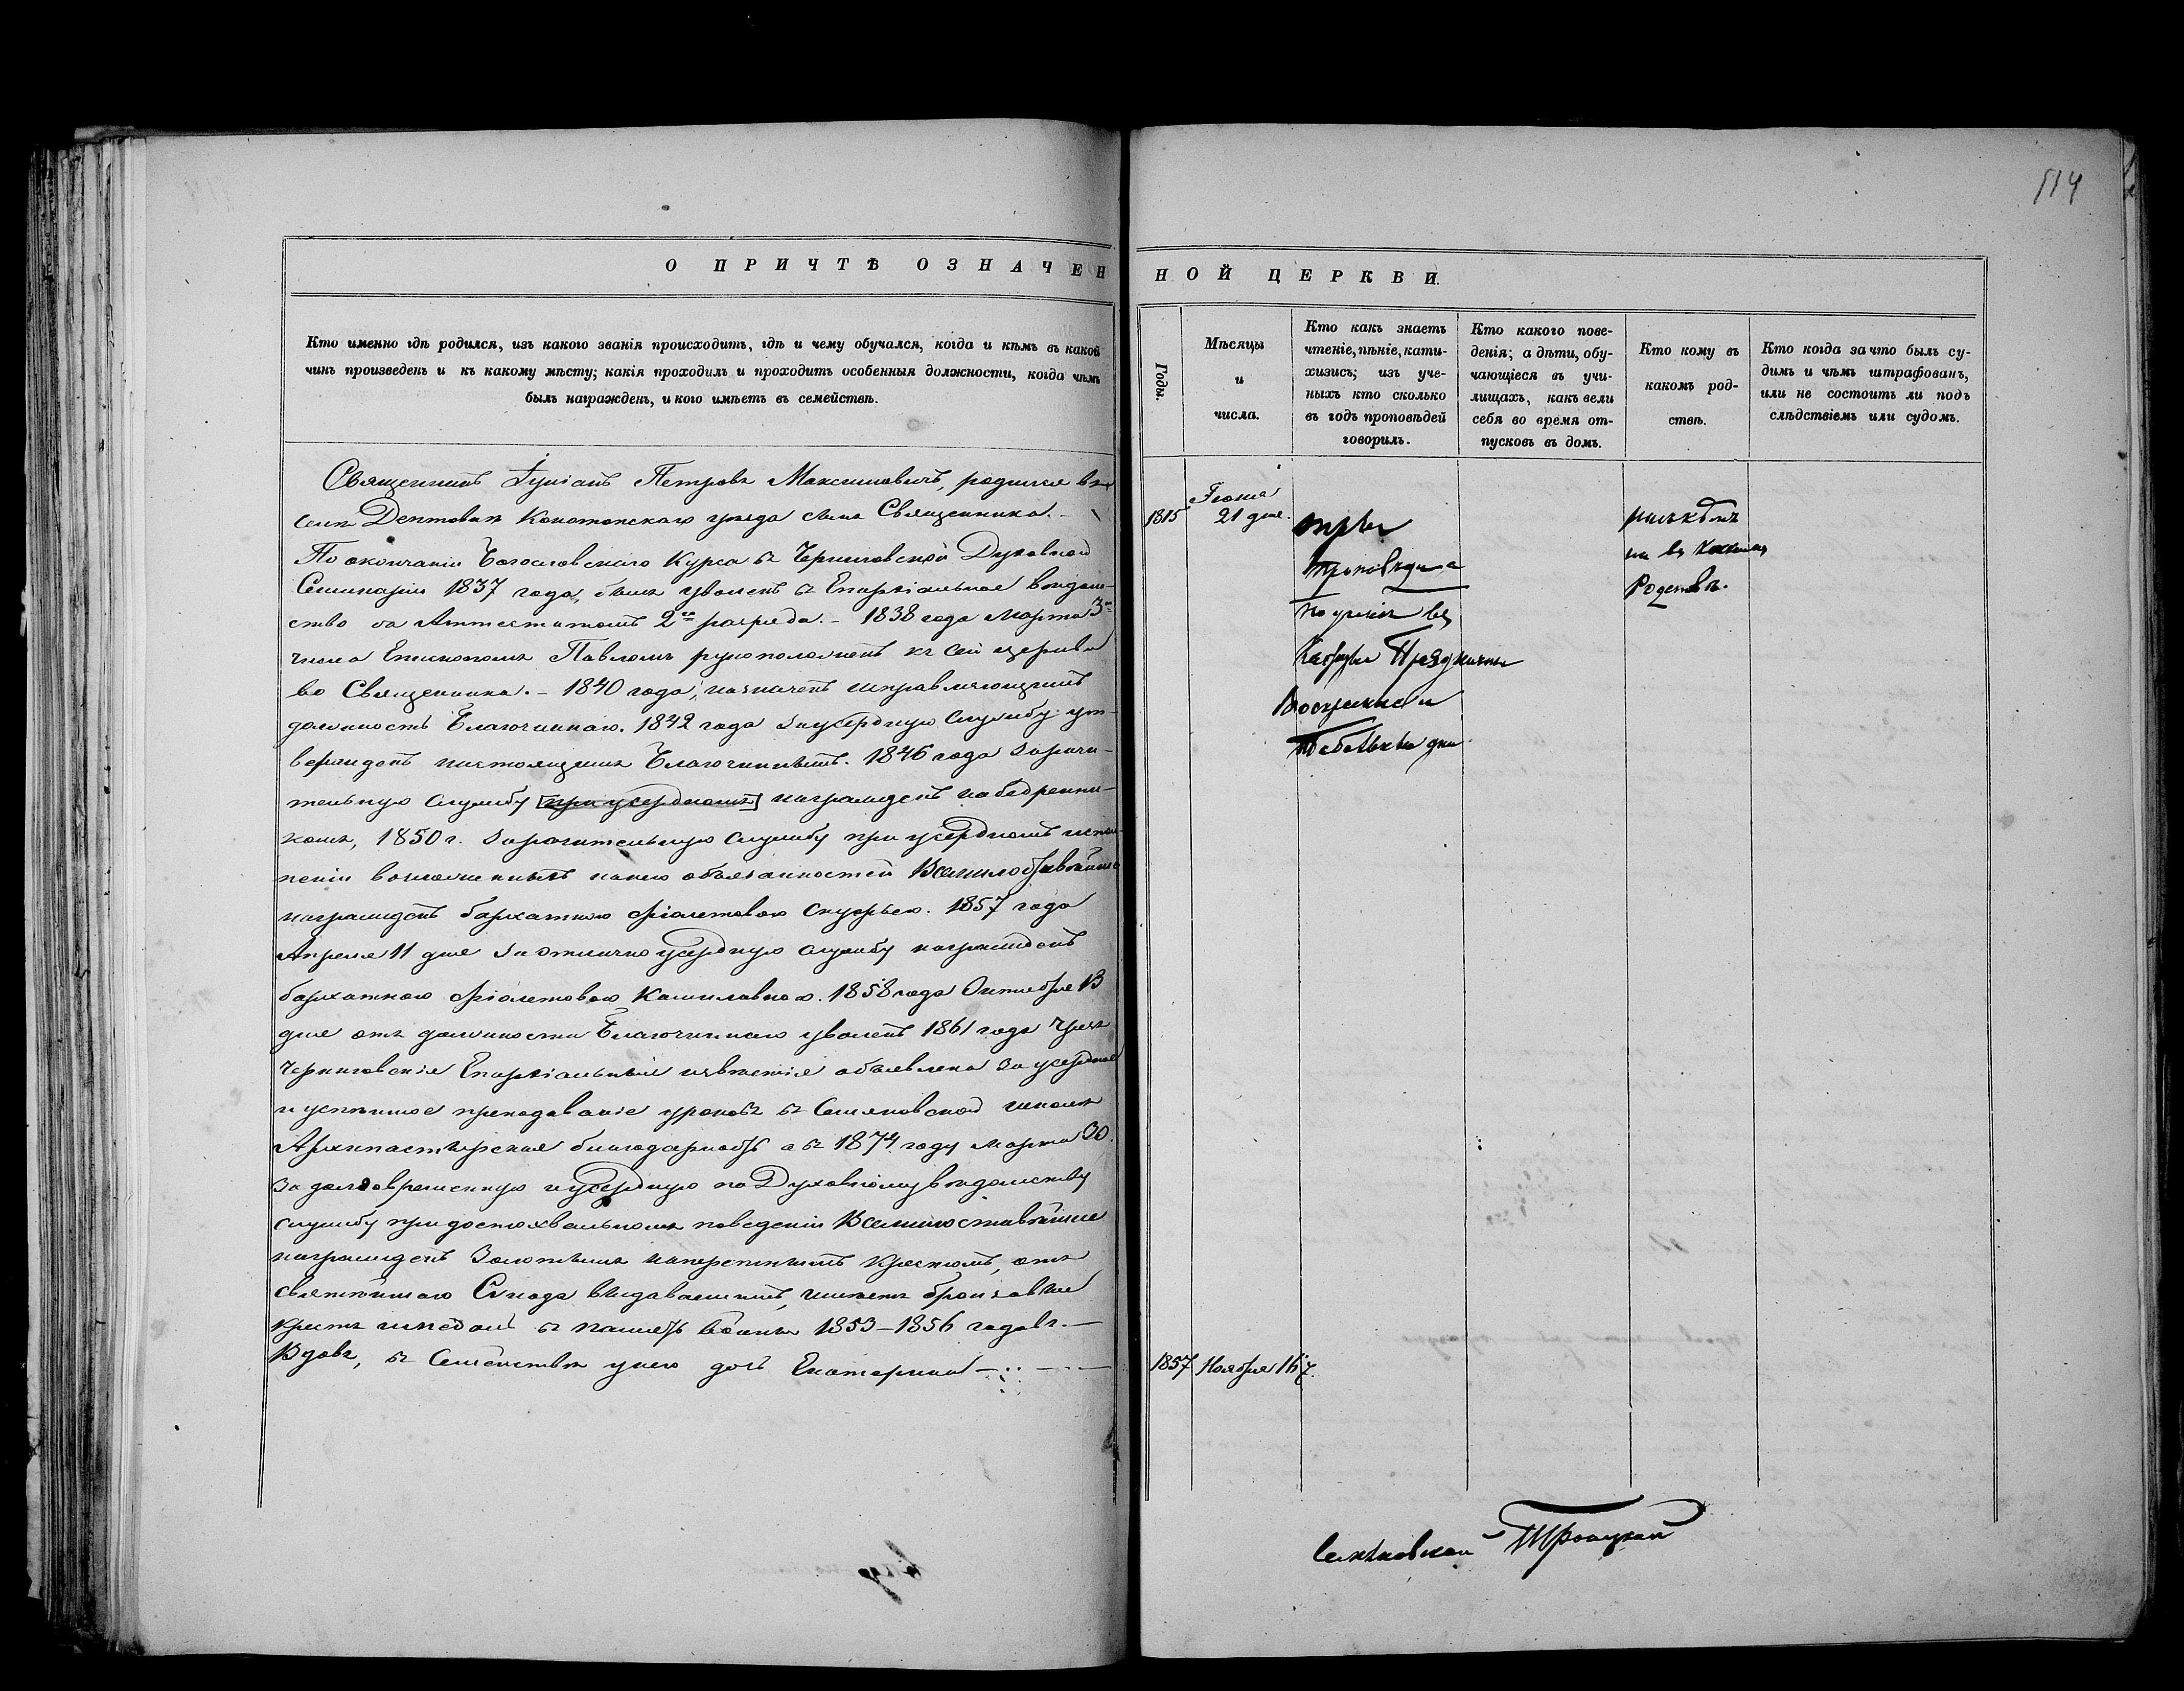 514
О ПРИЧТѢ ОЗНАЧЕННОЙ ЦЕРКВИ.
Кто именно гдѣ родился, изъ какого званія происходитъ, гдѣ и чему обучался, когда и кѣмъ въ какой
чинъ произведенъ и къ какому мѣсту; какія проходилъ и проходитъ особенныя должности, когда чѣмъ
былъ награжденъ, и кого имѣетъ въ семействѣ.
Священникъ Іуліанъ Петровъ Максимовичъ, родился въ
селѣ Дептовкѣ Конотопскаго уѣзда сынъ Священника. –
По окончаніи Богословскаго Курса въ Черниговской Духовной
Семинаріи 1837 года, былъ уволенъ въ Епархіальное вѣдом-
ство съ Аттестатомъ 2го разряда. – 1838 года Марта 3го
числа Епископомъ Павломъ рукоположенъ къ сей церкви
во Священника. – 1840 года, назначенъ исправляющимъ
должность Благочиннаго. 1842 года за усердную службу ут-
вержденъ настоящимъ Благочиннымъ. 1846 года за рачи-
тельную службу [при усердномъ] награжденъ набедренни-
комъ, 1850 г. за рачительную службу при усердномъ испол-
неніи возложенныхъ на него обязанностей Всемилостивѣйше
награжденъ бархатною фіолетовою скуфьею. 1857 года
Апреля 11 дня за отлично усердную службу награжденъ
бархатною фіолетовою Камилавкою. 1858 года Октября 13
дня отъ должности Благочиннаго уволенъ 1861 года чрезъ
Черниговскія Епархіальныя извѣстія объявлена за усердное
и успѣшное преподаваніе уроковъ въ Семяновской школѣ
Архипастырская благодарность а въ 1874 году Марта 30.
за долговременную и усердную по Духовному вѣдомству
службу при достохвальномъ поведеніи Всемилостивѣйше
награжденъ Золотымъ наперснымъ крестомъ, отъ
Святѣйшаго Синода выдаваемымъ, имѣетъ бронзовые
крестъ и медаль въ память войны 1853–1856 годовъ. –
Вдовъ, въ Семействѣ у него дочь Екатерина –
Годы.
Мѣсяцы
и
числа.
Кто какъ знаетъ
чтеніе, пѣніе, кати-
хизисъ; изъ уче-
ныхъ кто сколько
въ годъ проповѣдей
говорилъ.
Кто какого пове-
денія; а дѣти, обу-
чающіеся въ учи-
лищахъ, какъ вели
себя во время от-
пусковъ въ домъ.
Кто кому въ
какомъ род-
ствѣ.
Кто когда за что былъ су-
димъ и чѣмъ штрафованъ,
или не состоитъ ли подъ
слѣдствіемъ или судомъ.
1815
Іюня
21 дня.
три
проповѣди а
Праздничны
Воскресные и
дни
ни въ какомъ
Родствѣ.
1857 Ноября 16
Троицкой